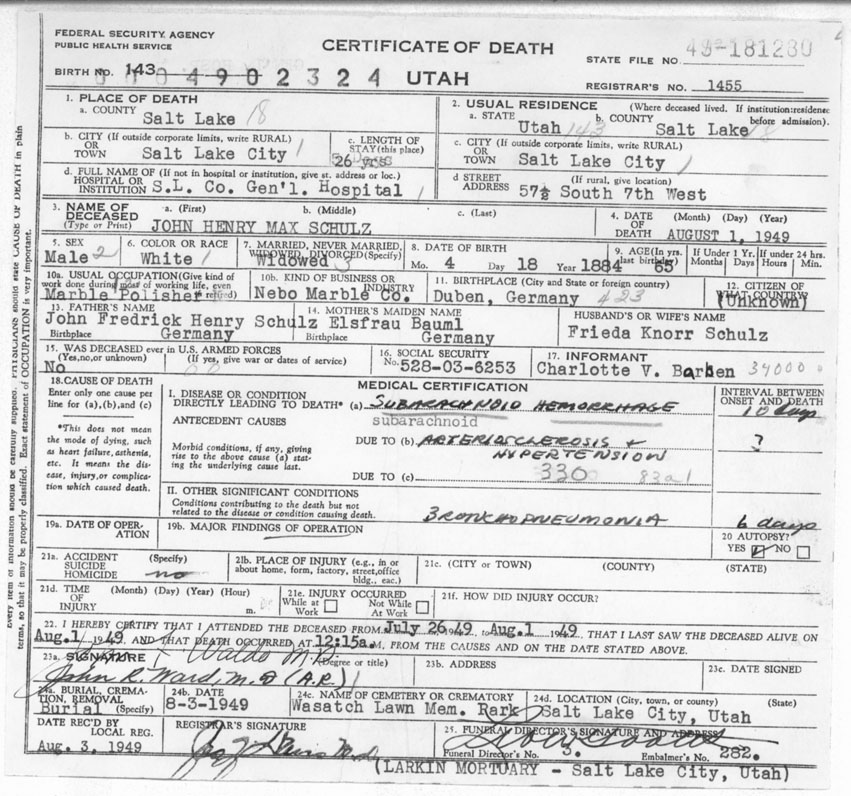 FEDERAL SECURITY AGENCY
PUBLIC HEALTH SERVICE
CERTIFICATE OF DEATH
STATE FILE NO. 49-181230
BIRTH NO. 143 0004902324 UTAH
REGISTRAR'S NO. 1455
1. PLACE OF DEATH
a. COUNTY
Salt Lake 18
2. USUAL RESIDENCE (Where deceased lived. If institution: residence before admission).
a. STATE b. COUNTY
Utah 143 Salt Lake 18
b. CITY (If outside corporate limits, write RURAL)
OR
TOWN Salt Lake City 1
c. LENGTH OF
STAY (this place)
26 yrs
c. CITY (If outside corporate limits, write RURAL)
OR
TOWN Salt Lake City 1
d. FULL NAME OF (If not in hospital or institution, give st. address or loc.)
HOSPITAL OR
INSTITUTION S.L. Co. Gen'l. Hospital 1
d STREET (If rural, give location)
ADDRESS 57½ South 7th West
3. NAME OF
DECEASED
(Type or Print)
a. (First) b. (Middle) c. (Last)
JOHN HENRY MAX SCHULZ
4. DATE (Month) (Day) (Year)
OF
DEATH AUGUST 1, 1949
5. SEX
Male 2
6. COLOR OR RACE
White 1
7. MARRIED, NEVER MARRIED,
WIDOWED, DIVORCED (Specify)
Widowed 3
8. DATE OF BIRTH
Mo. 4 Day 18 Year 1884
9. AGE (In yrs.
last birthday)
65
If Under 1 Yr.
Months Days
If under 24 hrs.
Hours Min.
10a. USUAL OCCUPATION (Give kind of
work done during most of working life, even
if retired)
Marble Polisher
10b. KIND OF BUSINESS OR
INDUSTRY
Nebo Marble Co.
11. BIRTHPLACE (City and State or foreign country)
Duben, Germany 423
12. CITIZEN OF
WHAT COUNTRY?
(Unknown)
13. FATHER'S NAME
John Fredrick Henry Schulz
Birthplace Germany
14. MOTHER'S MAIDEN NAME
Elsfrau Bauml
Birthplace Germany
HUSBAND'S OR WIFE'S NAME
Frieda Knorr Schulz
15. WAS DECEASED EVER IN U.S. ARMED FORCES
(Yes, no, or unknown) (If yes, give war or dates of service)
No
16. SOCIAL SECURITY
No. 528-03-6253
17. INFORMANT
Charlotte V. Barben 34000
18. CAUSE OF DEATH
Enter only one cause per
line for (a), (b), and (c)
*This does not mean
the mode of dying, such
as heart failure, asthenia,
etc. It means the dis-
ease, injury, or complica-
tion which caused death.
MEDICAL CERTIFICATION
INTERVAL BETWEEN
ONSET AND DEATH
I. DISEASE OR CONDITION
DIRECTLY LEADING TO DEATH* (a) SUBARACHNOID HEMORRHAGE 10 days
subarachnoid
ANTECEDENT CAUSES
Morbid conditions, if any, giving
rise to the above cause (a) stat-
ing the underlying cause last.
DUE TO (b) ARTERIOSCLEROSIS + ?
HYPERTENSION
DUE TO (c) 330 83a1
II. OTHER SIGNIFICANT CONDITIONS
Conditions contributing to the death but not
related to the disease or condition causing death.
BRONCHOPNEUMONIA 6 days
19a. DATE OF OPER-
ATION
19b. MAJOR FINDINGS OF OPERATION
20 AUTOPSY?
YES NO
21a. ACCIDENT (Specify)
SUICIDE
HOMICIDE no
21b. PLACE OF INJURY (e.g., in or
about home, form, factory, street, office
bldg., eac.)
21c. (CITY or TOWN) (COUNTY) (STATE)
21d. TIME (Month) (Day) (Year) (Hour)
OF
INJURY m.
21e. INJURY OCCURRED
While at Work Not While At Work
21f. HOW DID INJURY OCCUR?
22. I HEREBY CERTIFY THAT I ATTENDED THE DECEASED FROM July 26 1949, to Aug. 1 1949 THAT I LAST SAW THE DECEASED ALIVE ON
Aug. 1 1949 AND THAT DEATH OCCURRED AT 12:15a M, FROM THE CAUSES AND ON THE DATE STATED ABOVE.
23a. SIGNATURE Waldo M.D. (Degree or title)
John R. Ward, M.D (A.R.)
23b. ADDRESS
23c. DATE SIGNED
24a. BURIAL, CREMA-
TION, REMOVAL
Burial (Specify)
24b. DATE
8-3-1949
24c. NAME OF CEMETERY OR CREMATORY
Wasatch Lawn Mem. Park
24d. LOCATION (City, town, or county) (State)
Salt Lake City, Utah
DATE REC'D BY
LOCAL REG.
Aug. 3, 1949
REGISTRAR'S SIGNATURE
25. FUNERAL DIRECTOR'S SIGNATURE AND ADDRESS
Funeral Director's No. Embalmer's No. 282.
(LARKIN MORTUARY - Salt Lake City, Utah)